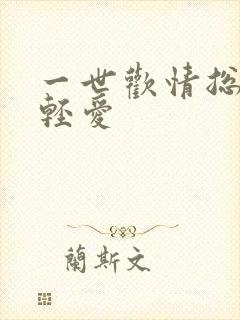 一世歡情總
輕愛
蘭斯文